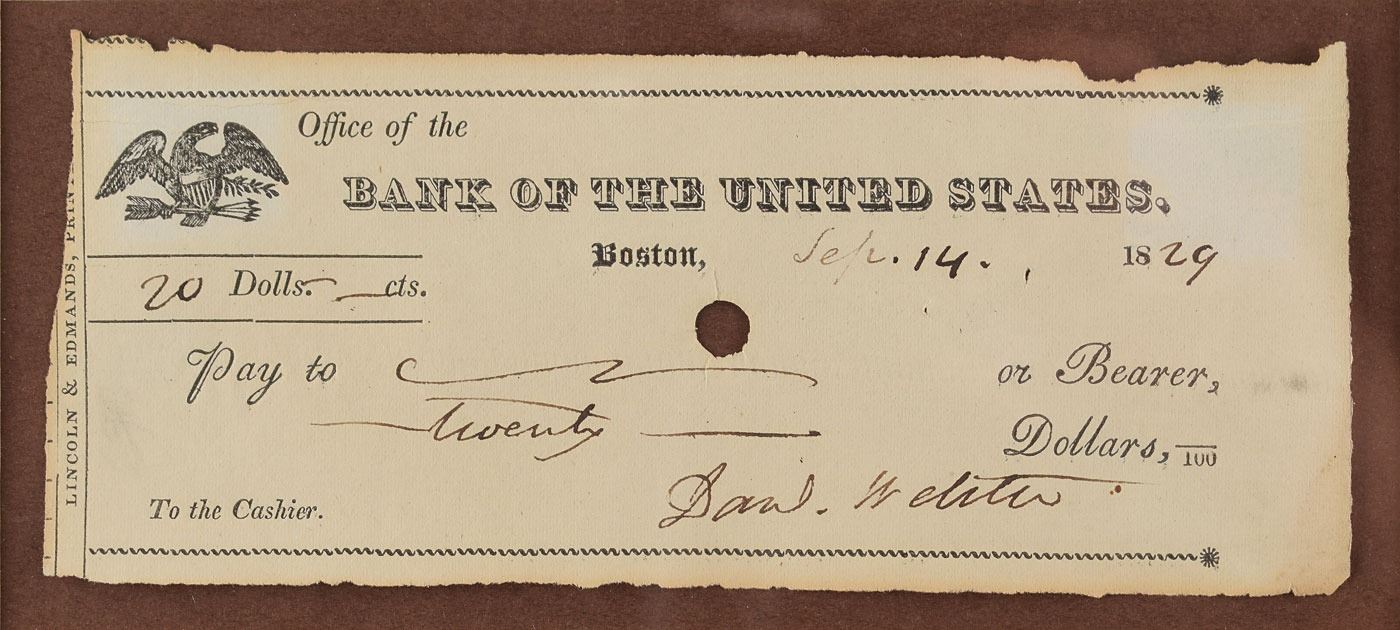 Office of the
BANK OF THE UNITED STATES.
Boston, Sep. 14. 1829
20 Dolls. — cts.
Pay to or Bearer,
twenty Dollars, /100
Danl. Webster
To the Cashier.
LINCOLN & EDMANDS, PRINT